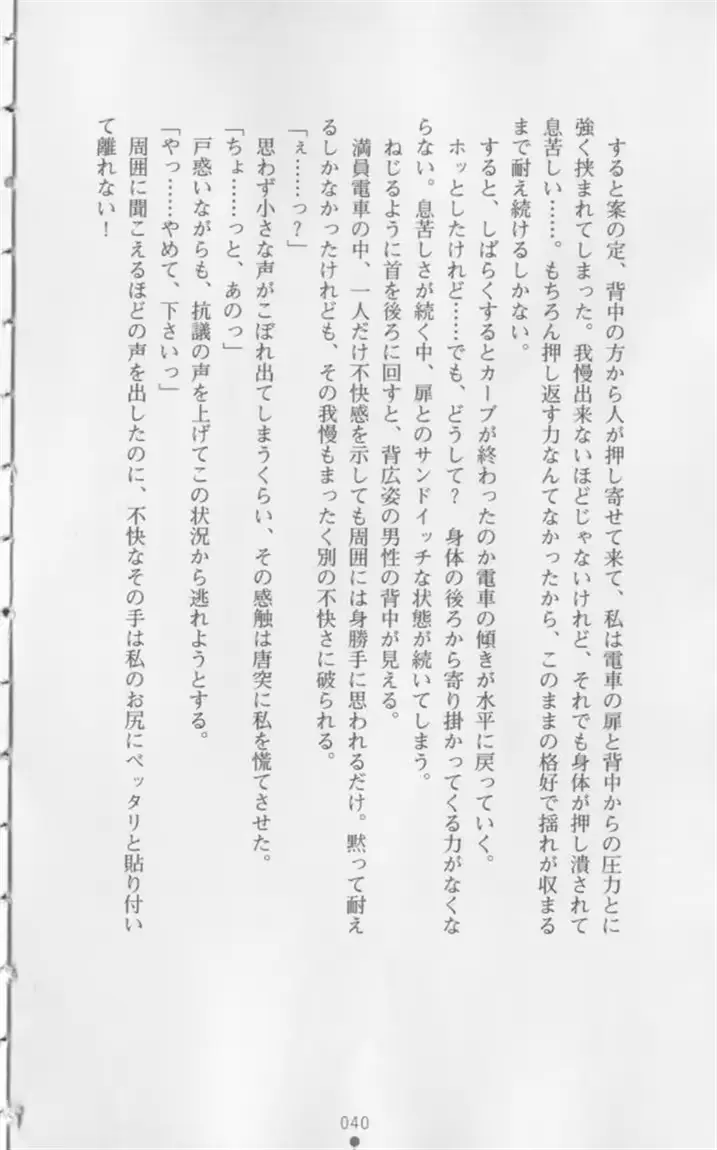 すると案の定、背中の方から人が押し寄せて来て、私は電車の扉と背中からの圧力とに
強く挟まれてしまった。我慢出来ないほどじゃないけれど、それでも身体が押し潰されて
息苦しい……。もちろん押し返す力なんてなかったから、このままの格好で揺れが収まる
まで耐え続けるしかない。
すると、しばらくするとカーブが終わったのか電車の傾きが水平に戻っていく。
ホッとしたけれど……でも、どうして？　身体の後ろから寄り掛かってくる力がなくな
らない。息苦しさが続く中、扉とのサンドイッチな状態が続いてしまう。
ねじるように首を後ろに回すと、背広姿の男性の背中が見える。
満員電車の中、一人だけ不快感を示しても周囲には身勝手に思われるだけ。黙って耐え
るしかなかったけれども、その我慢もまったく別の不快さに破られる。
「ぇ……っ？」
思わず小さな声がこぼれ出てしまうくらい、その感触は唐突に私を慌てさせた。
「ちょ……っと、あのっ」
戸惑いながらも、抗議の声を上げてこの状況から逃れようとする。
「やっ……やめて、下さいっ」
周囲に聞こえるほどの声を出したのに、不快なその手は私のお尻にベッタリと貼り付い
て離れない！
040